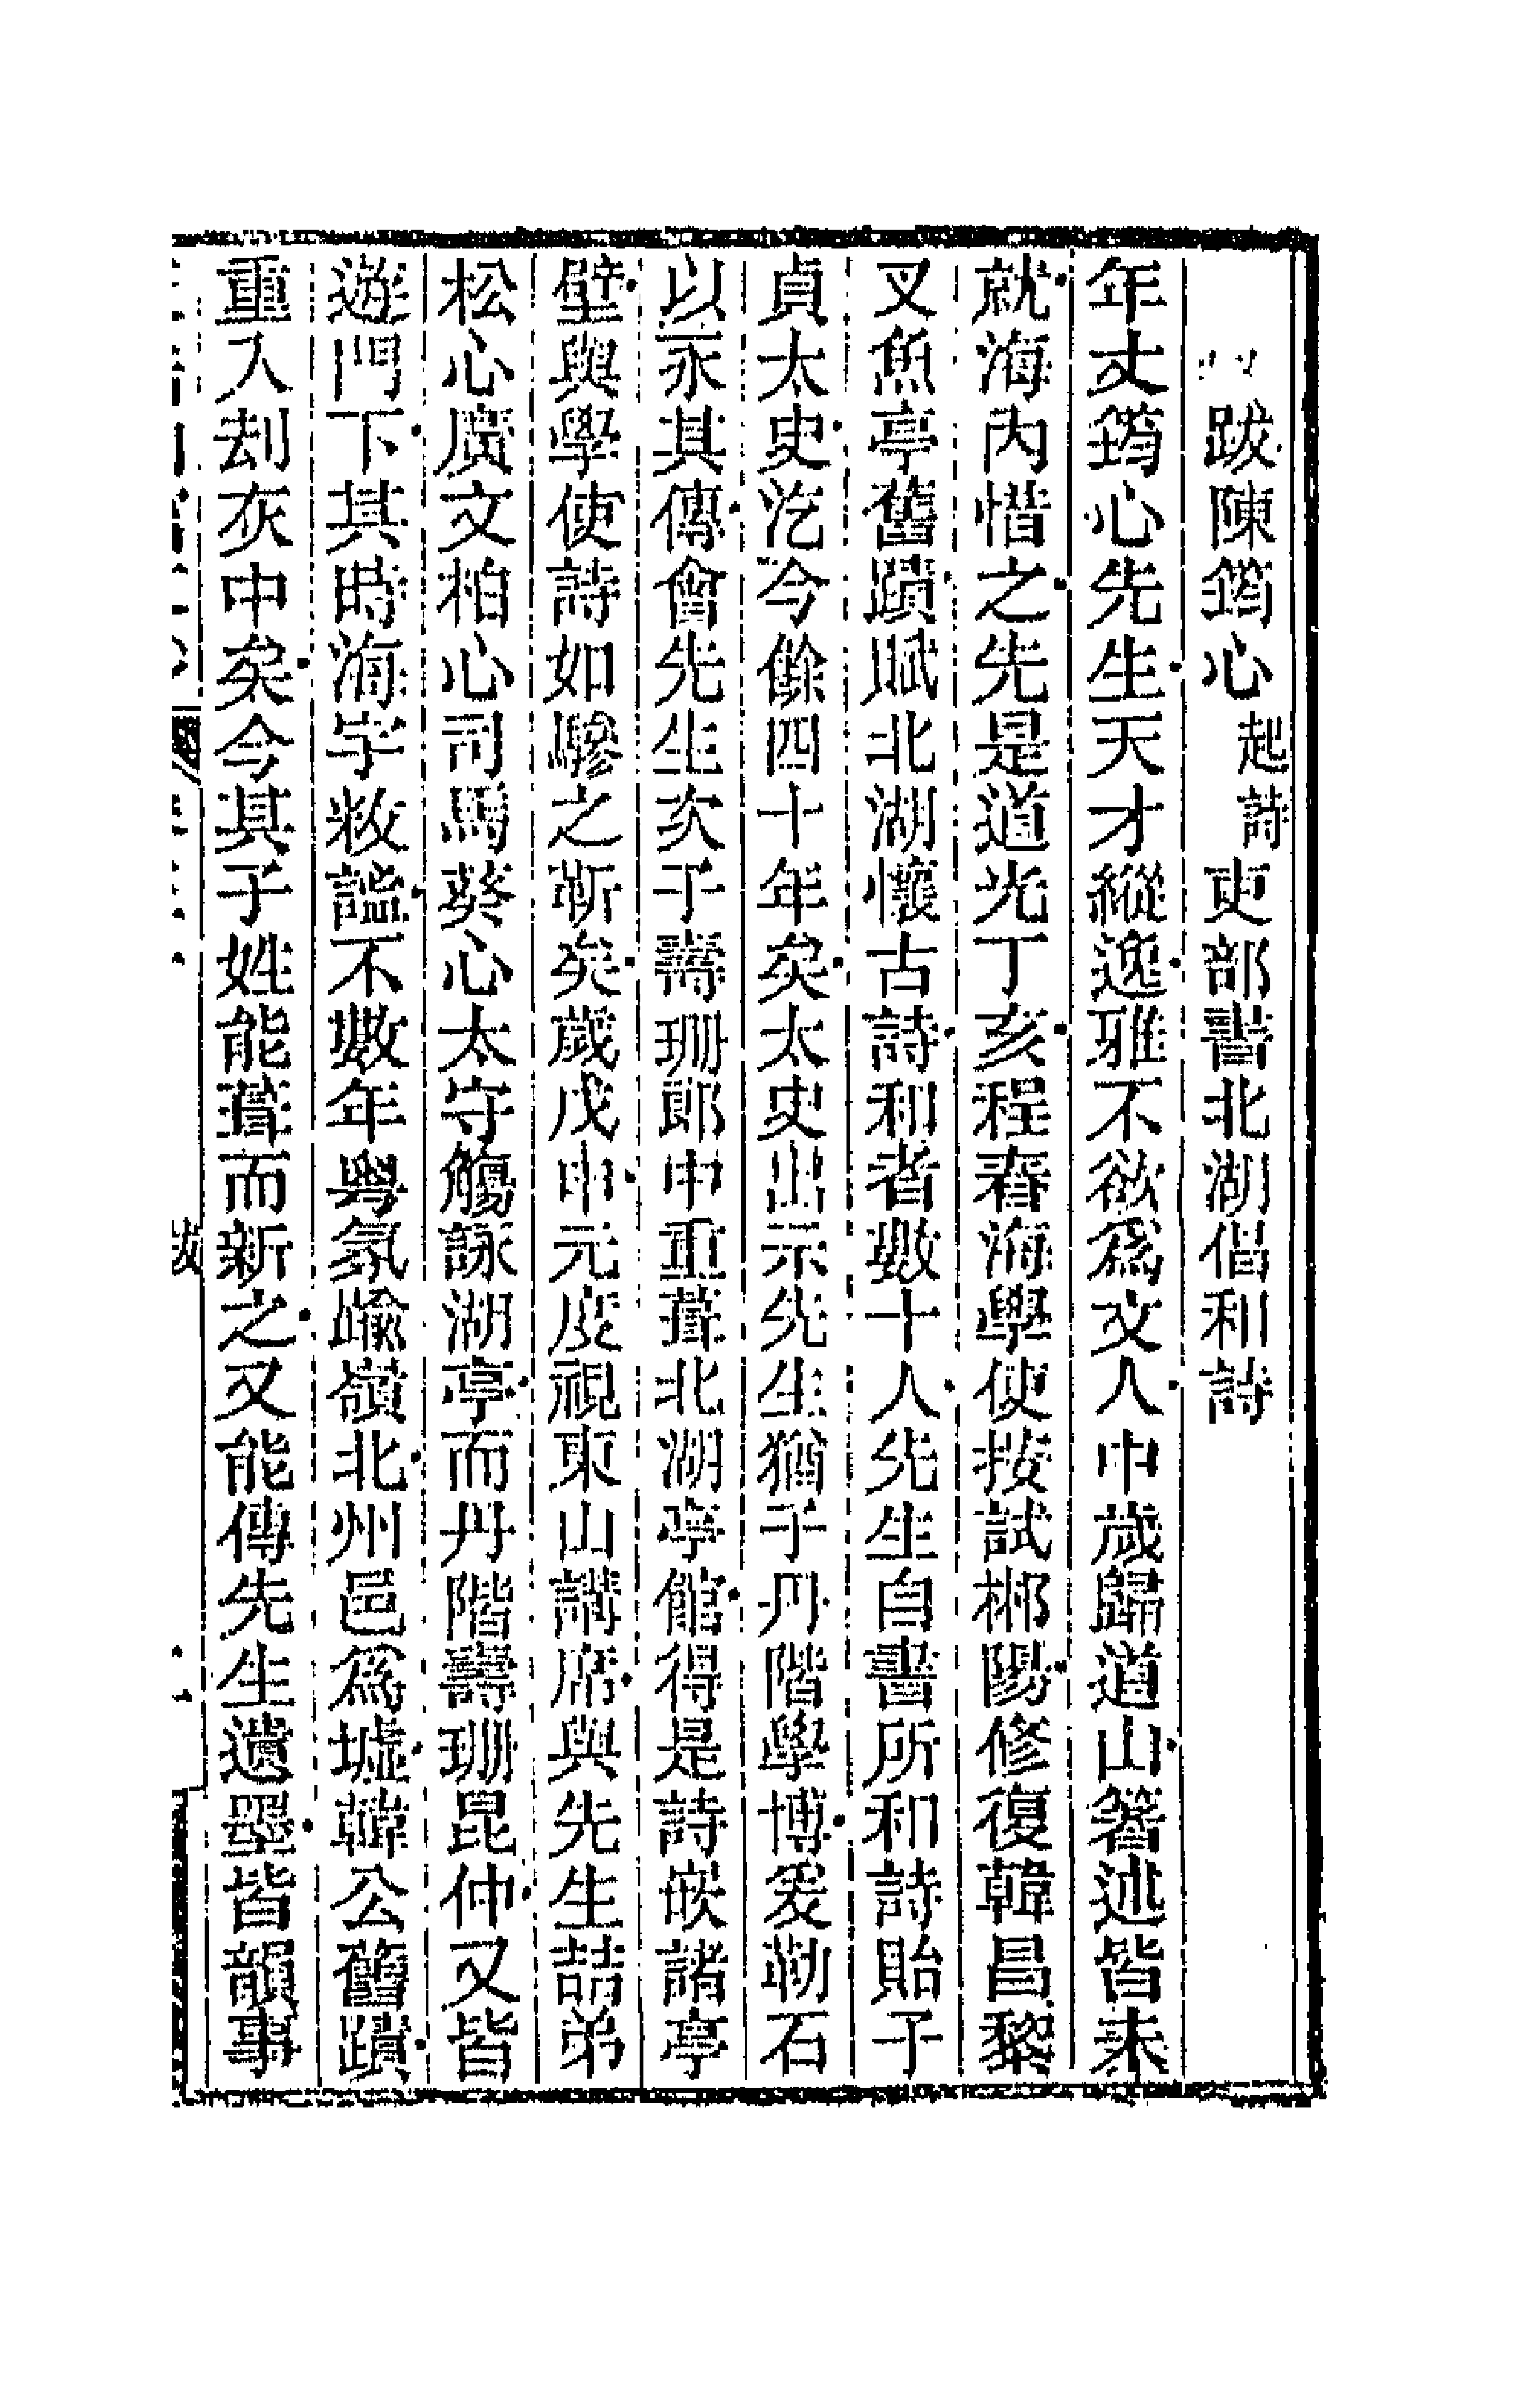 跋陳筠心起詩吏部書北湖倡和詩
年丈筠心先生天才縱逸雅不欲爲文人中歲歸道山箸述皆未
就海內惜之先是道光丁亥程春海學使按試郴陽修復韓昌黎
叉魚亭舊蹟賦北湖懷古詩和者數十人先生自書所和詩貽子
貞太史汔今餘四十年矣太史出示先生猶子丹階學博爰勒石
以永其傳會先生次子壽珊郎中重葺北湖亭館得是詩嵌諸亭
壁與學使詩如驂之靳矣歲戊申元度視東山講席與先生喆弟
松心廣文柏心司馬葵心太守觴詠湖亭而丹階壽珊昆仲又皆
遊門下其時海宇敉謐不數年粤氛踰嶺北州邑爲墟韓公舊蹟
重入刦灰中矣今其子姓能葺而新之又能傳先生遺墨皆韻事
跋